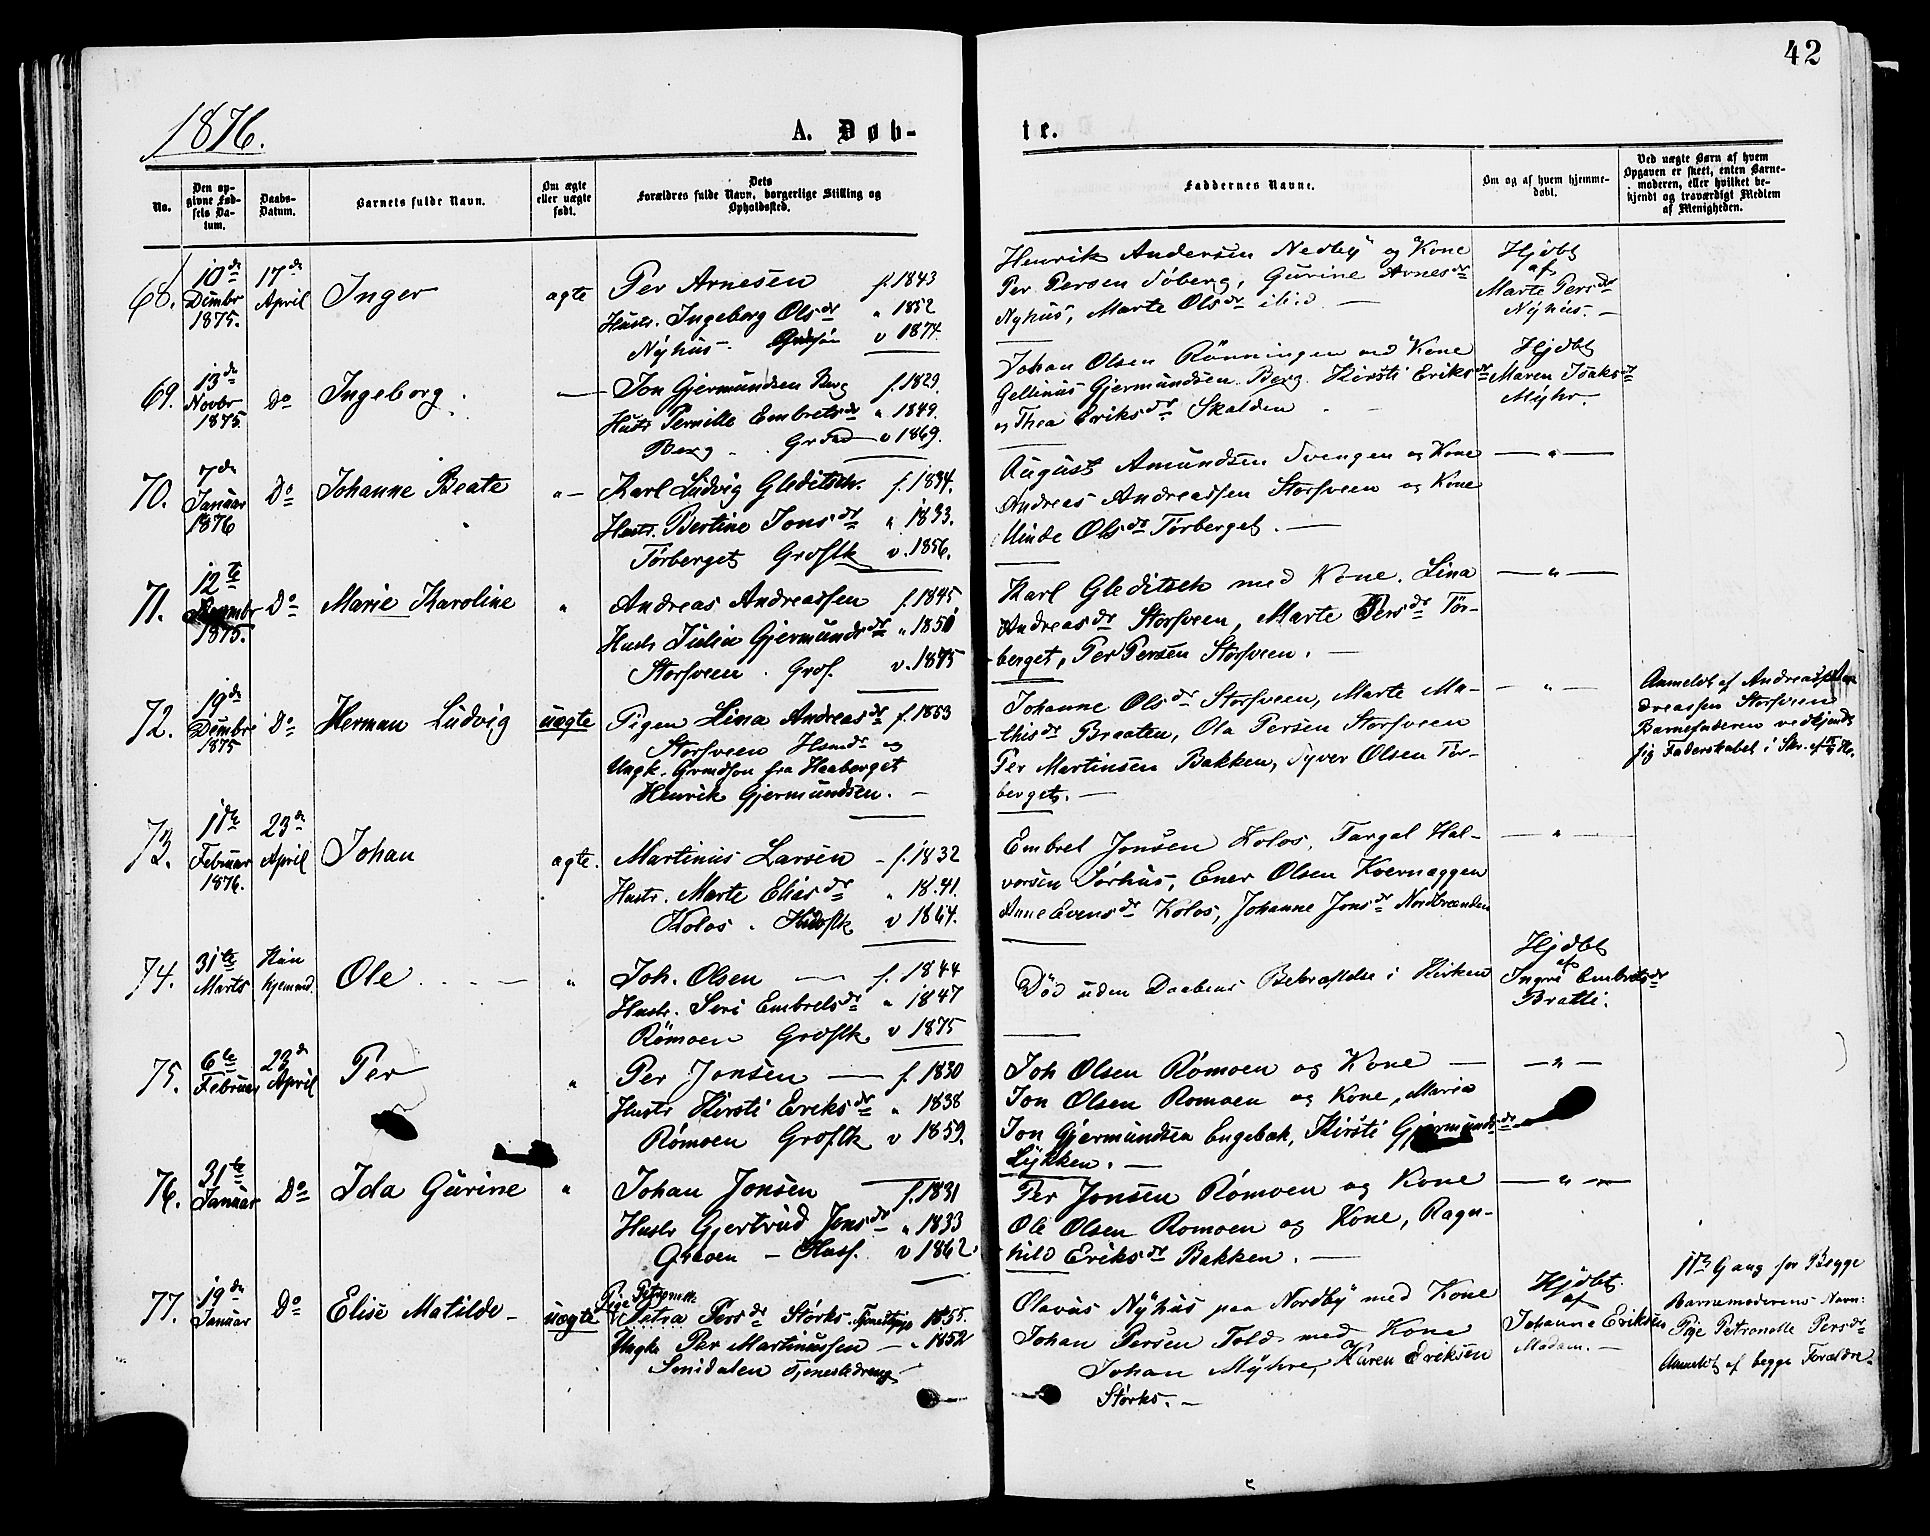 42
1876.
A. Døb-
te.
No.
Den op-
givne Fød-
sels Da-
tum.
Daabs-
Datum.
Barnets fulde Navn.
Om ægte
eller uægte
født.
Dets
Forældres fulde Navn, borgerlige Stilling og
Opholdssted.
Faddernes Navne.
Om og af hvem hjemme-
døbt.
Ved uægte Børn af hvem
Opgaven er skeet, enten Barne-
moderen, eller hvilket be-
kjendt og troværdigt Medlem
af Menigheden.
68.
10de
Dcmbr
1875.
17de
April
Inger
ægte
Per Arnesen f. 1843
Hustr. Ingeborg Olsdr " 1852
Nyhus. v 1874.
Henrik Andersen Nedby og Kone
Per Persen Søberg, Gurine Arnesdr
Nyhus, Marte Olsdr ibid —
Hjdbt
af
Marte Persdr
Nyhus. —
69.
13de
Novbr
1875
Do
Ingeborg.
—
Jon Gjermundsen Berg f. 1829.
Hustr Pernille Embretsdr " 1849.
Berg. v 1869.
Johan Olsen Rønningen med Kone
Gellinus Gjermundsen Berg. Kirsti Eriksdr
og Thea Eriksdr Skalden
Hjdbt
Maren Isaksdr
Myhr.
70.
7de
Januar
1876
Do
Johanne Beate
" —
Karl Ludvig Gleditsch. f. 1834.
Hustr. Bertine Jonsdr " 1833.
Tørberget Grdsflk v. 1856.
August Amundsen Svengen og Kone
Andreas Andreassen Storsveen og Kone
Minde Olsdr Tørberget. —
— " —
71.
12te
1875.
Do
Marie Karoline
"
Andreas Andreassen f. 1845
Hustr Julia Gjermundsdr " 1850
Storsveen. Grdf. v. 1875
Karl Gleditsch med Kone. Lina
Andreasdr Storsveen, Marte Persdr Tør-
berget, Per Persen Storsveen. —
— " —
72.
19de
Dcmbr
1875
Do
Herman Ludvig
uægte
Pigen Lina Andreasdr f. 1853
Storsveen Hsmdr og
Ungk. Grmdsøn fra Haaberget
Henrik Gjermundsen. —
Johanne Olsdr Storsveen, Marte Ma-
thisdr Braaten, Ola Persen Storsveen
Per Martinsen Bakken, Syver Olsen Tør-
berget. —
— " —
Anmeldt af Andreas An
dreassen Storsveen
Barnefaderen vedkjendt
sig Faderskabet i Skr. af
73.
11te
Februar
1876.
23de
April
Johan
ægte.
Martinus Larsen - f. 1832
Hustr. Marte Eliasdr " 1841.
Kolos. v 1864.
Embret Jonsen Kolos, Targal Hal-
vorsen Sørhus, Ener Olsen Kvernæggen
Anne Evensdr Kolos, Johanne Jonsdr Nordbrænden
— " —
74.
31te
Marts
Kun
hjemmd.
Ole
"
Joh. Olsen — f. 1844
Hustr. Seri Embretsdr " 1847
Rømoen Grdsflk v 1875
Død uden Daabens Bekræftelse i Kirken
Hjdbt
af
Ingri Embretsdr
Bratli.
75.
6te
Februar
23de
April
Per
"
Per Jonsen — f. 1830
Hustr Kirsti Eriksdr " 1838
Rømoen Grdsflk v 1859.
Joh Olsen Rømoen og Kone —
Jon Olsen Romoen og Kone, Maria
Jon Gjermundsen Engebak, Kirsti Gjermundsdr
Lykken. —
— " —
76.
31te
Januar
Do
Ida Gurine
"
Johan Jonsen f. 1831
Hustr Gjertrud Jonsdr " 1833
Græven — Husf. v 1862.
Per Jonsen Rømoen og Kone
Ole Olsen Romoen og Kone, Ragn-
hild Eriksdr Bakken. —
— " —
77.
19de
Januar
Do
Elise Matilde -
uægte
Pige Petronelle
Petra Persdr Størks. 1855.
Ungk. Per Martinussen — " 1852
Senisdalen Tjenestedreng
Olavus Nyhus paa Nordby med Kone
Johan Persen Told med Kone
Johan Myhre, Karen Eriksen
Størks. —
Hjdbt
af
Johanne Eriksen
Madam. —
1ste Gang for Begge
Barnemoderens Navn:
Pige Petronelle Persdr
Anmeldt af begge Forældre.